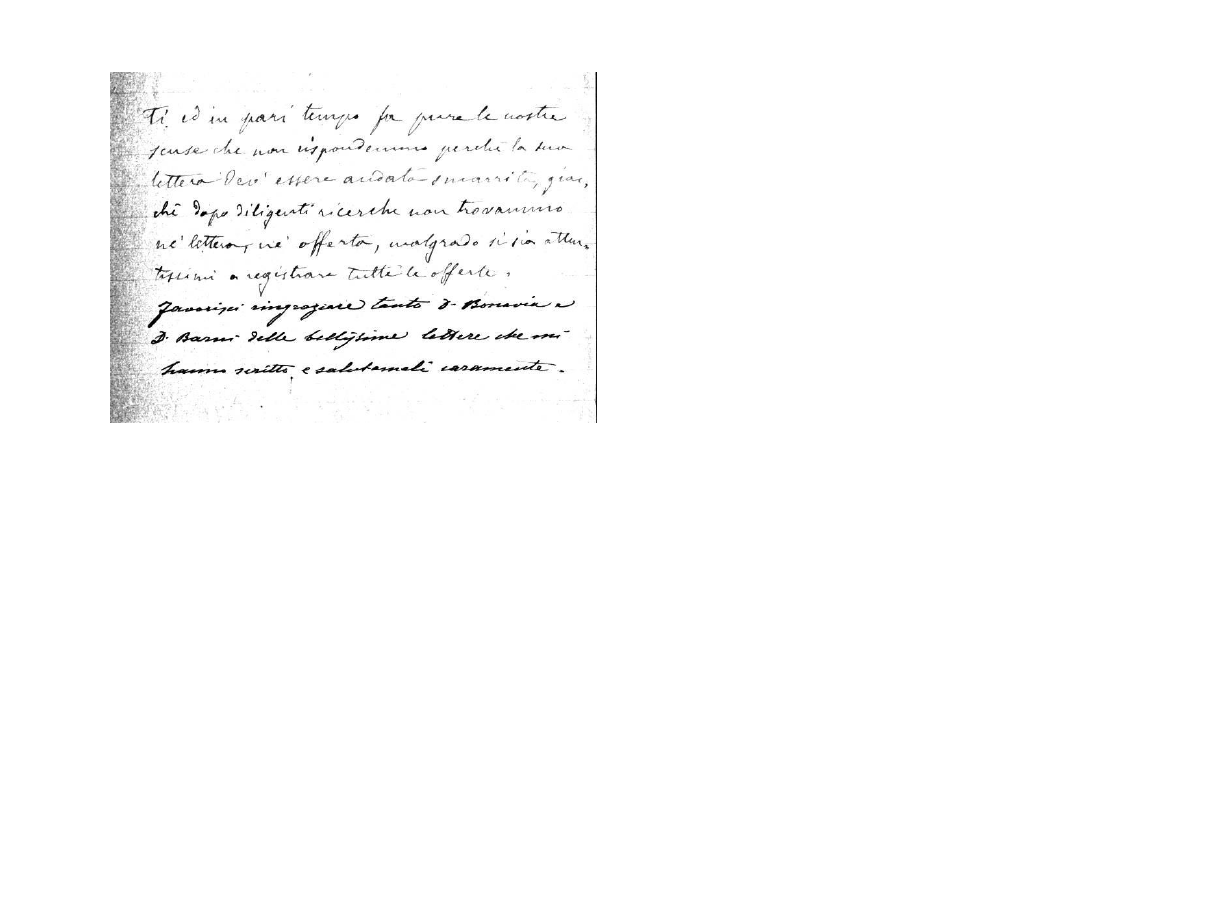 ti ed in pari tempo fa pure le nostre
scuse che non rispondemmo perchè la sua
lettera dev' essere andata smarrita, giac,
chè dopo diligenti ricerche non trovammo
nè lettera, nè offerta, malgrado si sia atten-
tissimi a registrare tutte le offerte.
Favorisci ringraziare tanto D. Bonavia e
D. Barni delle bellissime lettere che mi
hanno scritto, e salutameli caramente.